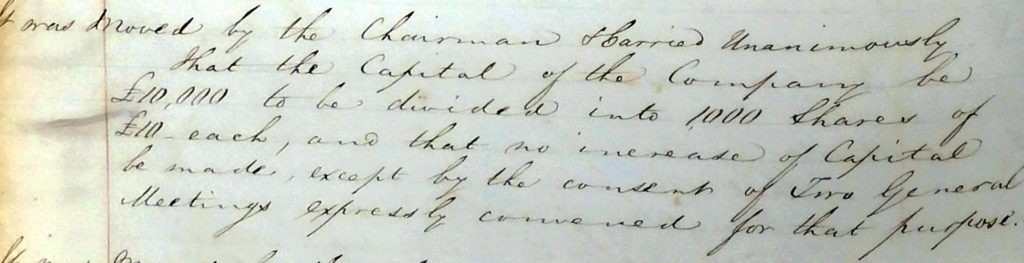 It was Moved by the Chairman & Carried Unanimously
that the Capital of the Company be
£10,000 to be divided into 1000 Shares of
£10 - each, and that no increase of Capital
be made, except by the consent of Two General
Meetings expressly convened for that purpose.
It was Moved by the